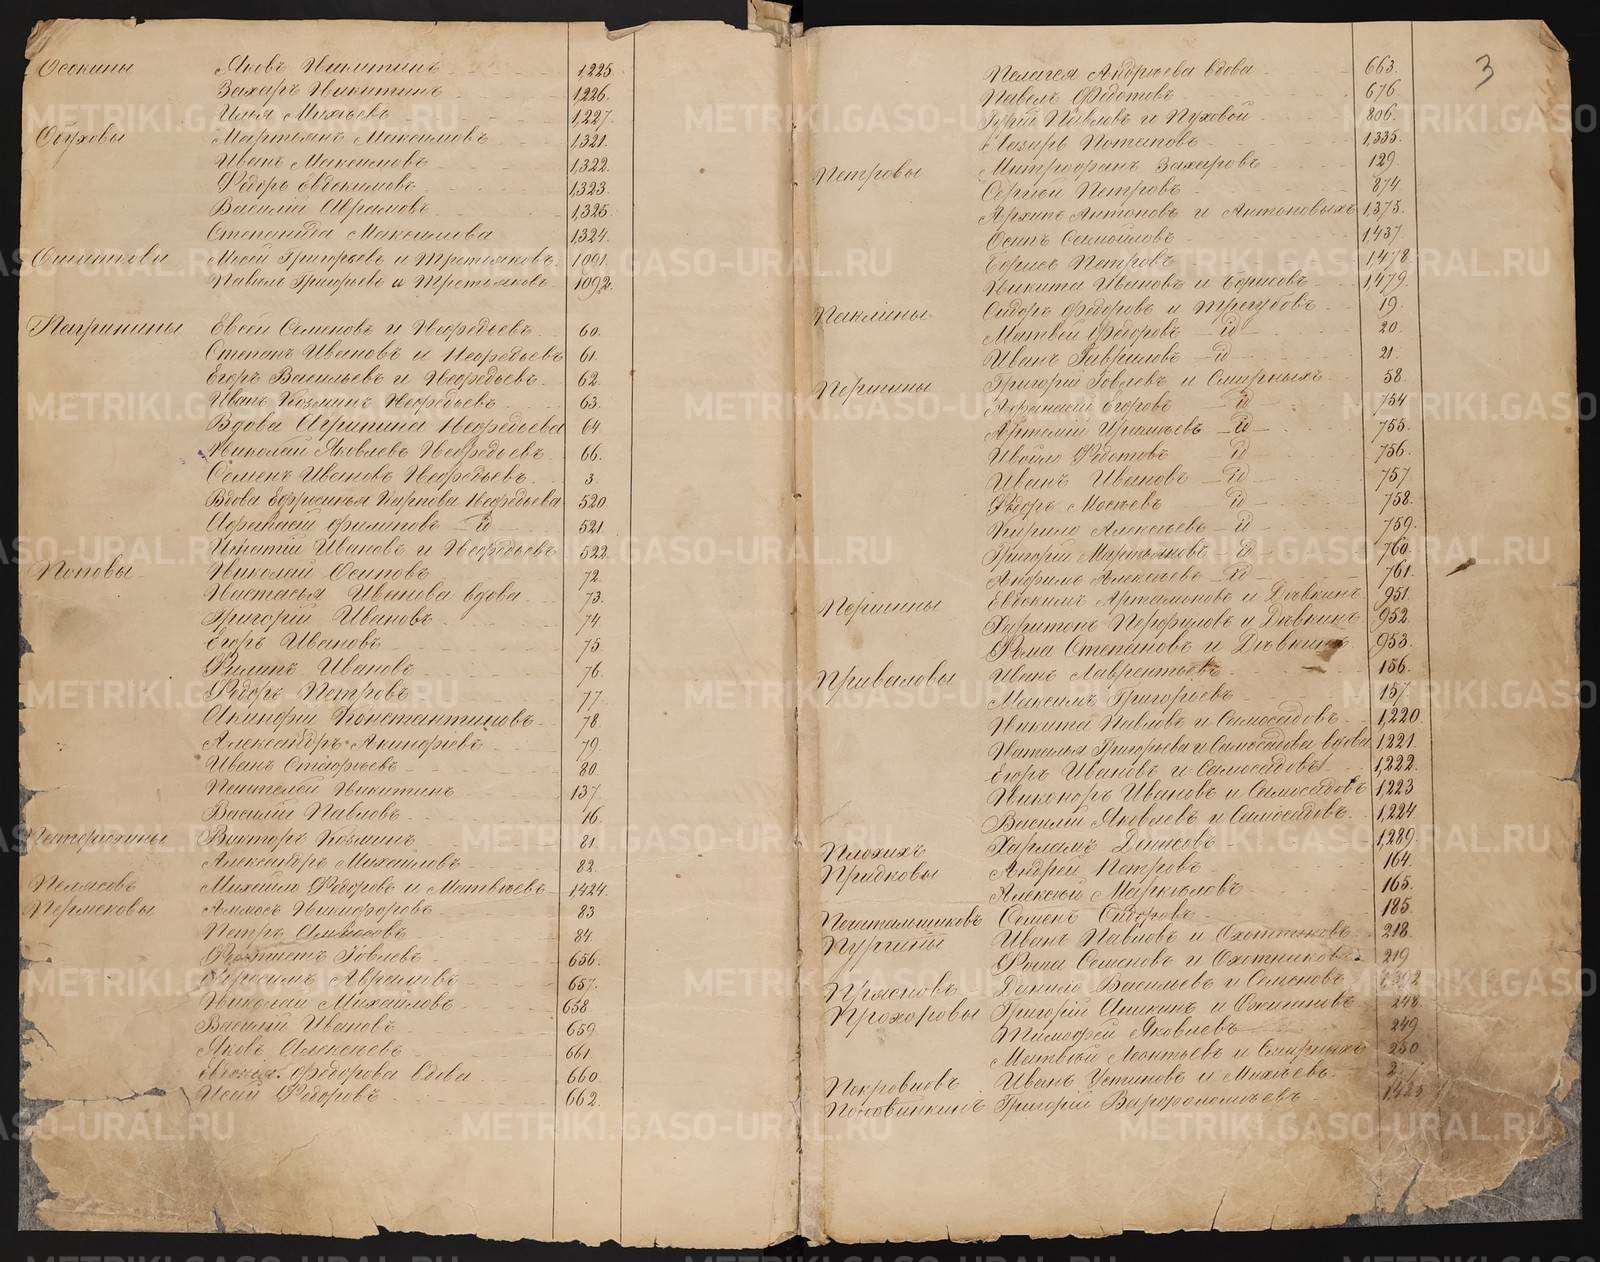 3
Осокины Яковъ Никитинъ 1,225.
Захаръ Никитинъ 1,226.
Илья Михѣевъ 1,227.
Обуховы Мартемьянъ Максимовъ 1,321.
Иванъ Максимовъ 1,322.
Ѳедоръ Евдокимовъ 1,323.
Василій Абрамовъ 1,325
Степанида Максимова 1,324.
Мосей Григорьевъ и Третьяковъ. 1091.
Павелъ Григорьевъ и Третьяковъ. 1092.
Евсѣй Семеновъ и Неѳедьевъ. 60.
Степанъ Ивановъ и Неѳедьевъ 61.
Егоръ Васильевъ и Неѳедьевъ. 62.
Иванъ Козминъ Неѳедьевъ 63.
Вдова Агрипина Неѳедьева 64
Николай Яковлевъ Неѳедьевъ. 66.
Семенъ Ивановъ Неѳедьевъ. 3
Вдова Ефросинья Карпова Неѳедьева 520
Афанасій Филиповъ — id — 521
Игнатій Ивановъ и Неѳедьевъ 522.
Поповы Николай Осиповъ 72.
Настасья Иванова вдова 73.
Григорій Ивановъ 74
Егоръ Ивановъ 75
Филипъ Ивановъ 76.
Ѳедоръ Петровъ 77.
Акинфій Константиновъ 78
Александръ Акинфіевъ 79
Иванъ 80
Пантелей Никитинъ 137.
Василій Павловъ 16.
Викторъ Козминъ 81
Александръ Михайловъ 82.
Михайло Ѳедоровъ и Матвѣевъ 1424.
Амосъ Никифоровъ 83
Петръ Амосовъ 84.
Ѳеоктистъ Іовлевъ 656.
Герасимъ Абрамовъ 657.
Николай Михайловъ 658
Василій Ивановъ 659
Яковъ Алексѣевъ 661
Евгенія Федорова вдова 660
Исай Ѳедоровъ 662.
Пелагея Андреева вдова 663.
Павелъ Федотовъ 676
Гурій Павловъ и Пуховой 806.
Лазарь Потаповъ 1,335.
Петровы Митрофанъ Захаровъ 129.
Сергѣй Петровъ 874
Архипъ Антоновъ и Антоновыхъ 1,375.
Осипъ Самойловъ 1,437
Борисъ Петровъ 1,478.
Никита Ивановъ и Борисовъ 1,479.
Паклины Сидоръ Федоровъ и Трегубовъ. 19.
Матвей Федоровъ — id 20
Иванъ Гавриловъ — id — 21
Першины Григорій Іовлевъ и Смирныхъ 58.
Афанасій Егоровъ — id — 754
Артемій — id — 755.
Ивойло Ѳедотовъ — id 756.
Иванъ Ивановъ — id — 757
Ѳедоръ Мосѣевъ id — 758.
Кирило Алексѣевъ — id 759.
Григорій Мартьяновъ — id 760.
Алексѣевъ — id — 761.
Першины Евдокимъ Артамоновъ и Дивкинъ. 951.
Харитонъ Перфиловъ и Дивкинъ 952.
Ѳома Степановъ и Дивкинъ 953
Приваловы Иванъ Лаврентьевъ 156.
Максимъ Григорьевъ 157
Никита Павловъ и Самосадовъ 1,220
Наталья Григорьева и Самосадова вдова 1,221.
Егоръ Ивановъ и Самосадовъ 1,222.
Никоноръ Ивановъ и Самосадовъ 1,223
Василій Яковлевъ и Самосадовъ. 1,224.
Плохихъ Харламъ Денисовъ 1,289.
Придковы Андрей Петровъ 164.
Алексѣй Маркеловъ 165.
Паштамщиковъ Семенъ Сидоровъ 185.
Пургины Иванъ Павловъ и Охотниковъ 218.
Ѳома Семеновъ и Охотниковъ 219
Прясновъ Данило Васильевъ и Семеновъ 1392
Прохоровы Григорій Аникинъ и Ожигановъ 248
Тимоѳей Яковлевъ 249
Матвѣй Леонтьевъ и Смирныхъ 250
Покровцовъ Иванъ Устиновъ и Михѣевъ.
Половинкинъ Григорій Варфоломѣевъ 1,425
METRIKI.GASO-URAL.RU